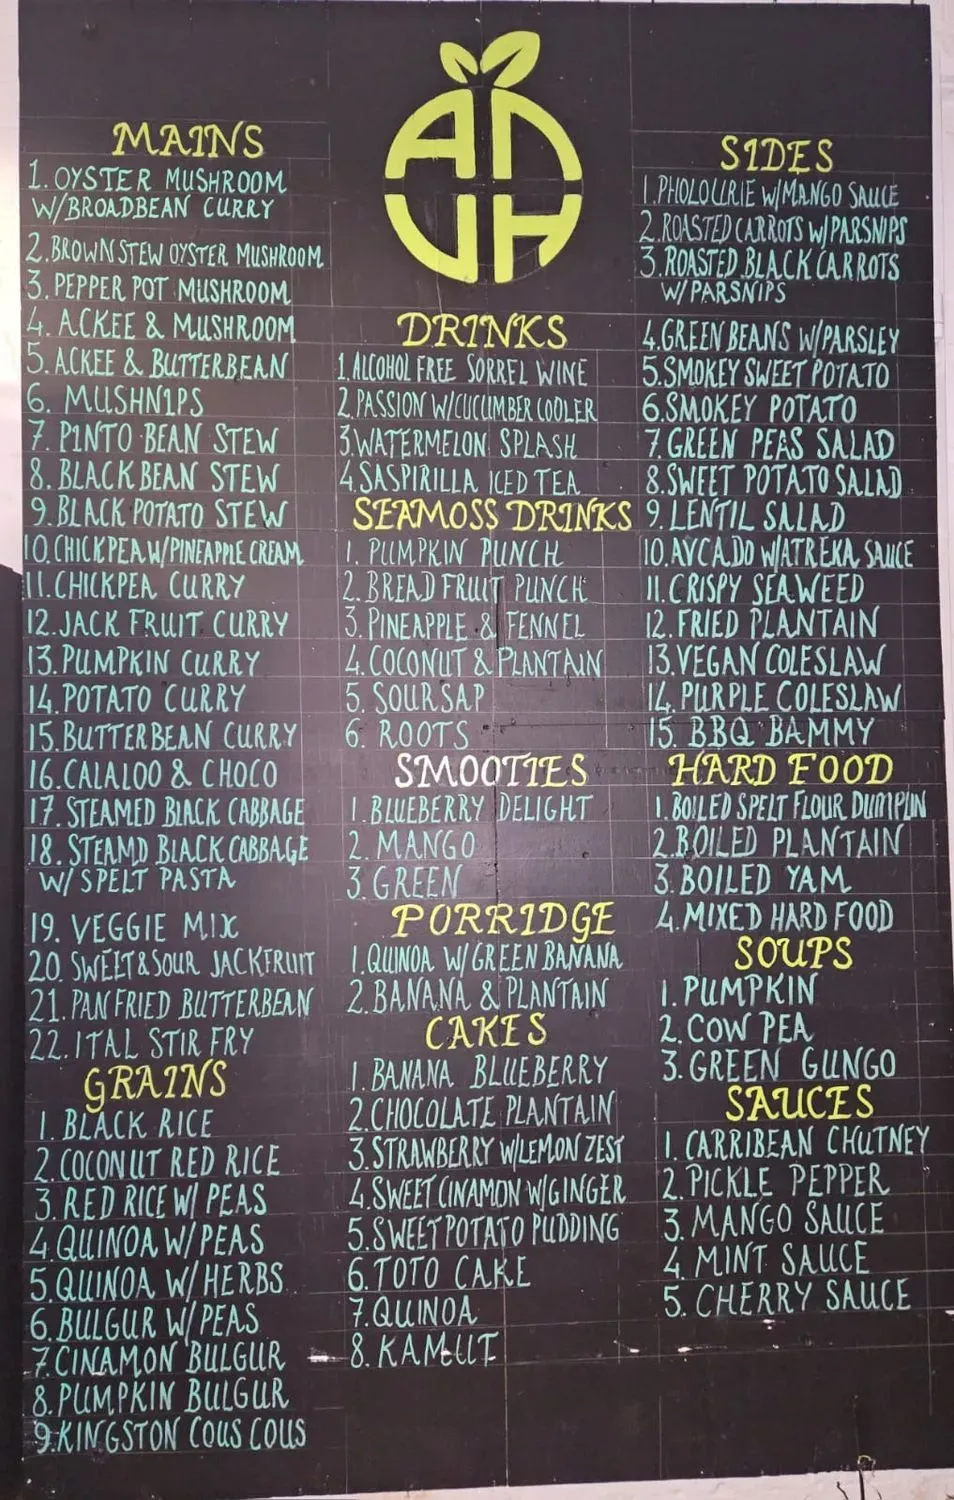 MAINS
1. OYSTER MUSHROOM
W/BROADBEAN CURRY
2. BROWN STEW OYSTER MUSHROOM
3. PEPPER POT MUSHROOM
4. ACKEE & MUSHROOM
5. ACKEE & BUTTERBEAN
6. MUSHNIPS
7. PINTO BEAN STEW
8. BLACK BEAN STEW
9. BLACK POTATO STEW
10. CHICKPEA W/PINEAPPLE CREAM
11. CHICKPEA CURRY
12. JACK FRUIT CURRY
13. PUMPKIN CURRY
14. POTATO CURRY
15. BUTTERBEAN CURRY
16. CALALOO & CHOCO
17. STEAMED BLACK CABBAGE
18. STEAMD BLACK CABBAGE
W/ SPELT PASTA
19. VEGGIE MIX
20. SWEET & SOUR JACKFRUIT
21. PAN FRIED BUTTERBEAN
22. ITAL STIR FRY
GRAINS
1. BLACK RICE
2. COCONUT RED RICE
3. RED RICE W/ PEAS
4. QUINOA W/PEAS
5. QUINOA W/HERBS
6. BULGUR W/PEAS
7. CINAMON BULGUR
8. PUMPKIN BULGUR
9. KINGSTON COUS COUS
DRINKS
1. ALCOHOL FREE SORREL WINE
2. PASSION W/CUCUMBER COOLER
3. WATERMELON SPLASH
4. SASPIRILLA ICED TEA
SEAMOSS DRINKS
1. PUMPKIN PUNCH
2. BREAD FRUIT PUNCH
3. PINEAPPLE & FENNEL
4. COCONUT & PLANTAIN
5. SOURSAP
6. ROOTS
SMOOTIES
1. BLUEBERRY DELIGHT
2. MANGO
3. GREEN
PORRIDGE
1. QUINOA W/GREEN BANANA
2. BANANA & PLANTAIN
CAKES
1. BANANA BLUEBERRY
2. CHOCOLATE PLANTAIN
3. STRAWBERRY W/LEMON ZEST
4. SWEET CINAMON W/GINGER
5. SWEET POTATO PUDDING
6. TOTO CAKE
7. QUINOA
8. KAMUT
SIDES
1. PHOLOURIE W/MANGO SAUCE
2. ROASTED CARROTS W/PARSNIPS
3. ROASTED BLACK CARROTS
W/PARSNIPS
4. GREEN BEANS W/PARSLEY
5. SMOKEY SWEET POTATO
6. SMOKEY POTATO
7. GREEN PEAS SALAD
8. SWEET POTATO SALAD
9. LENTIL SALAD
10. AVCADO W/ATREKA SAUCE
11. CRISPY SEAWEED
12. FRIED PLANTAIN
13. VEGAN COLESLAW
14. PURPLE COLESLAW
15. BBQ BAMMY
HARD FOOD
1. BOILED SPELT FLOUR DUMPLIN
2. BOILED PLANTAIN
3. BOILED YAM
4. MIXED HARD FOOD
SOUPS
1. PUMPKIN
2. COW PEA
3. GREEN GUNGO
SAUCES
1. CARRIBEAN CHUTNEY
2. PICKLE PEPPER
3. MANGO SAUCE
4. MINT SAUCE
5. CHERRY SAUCE